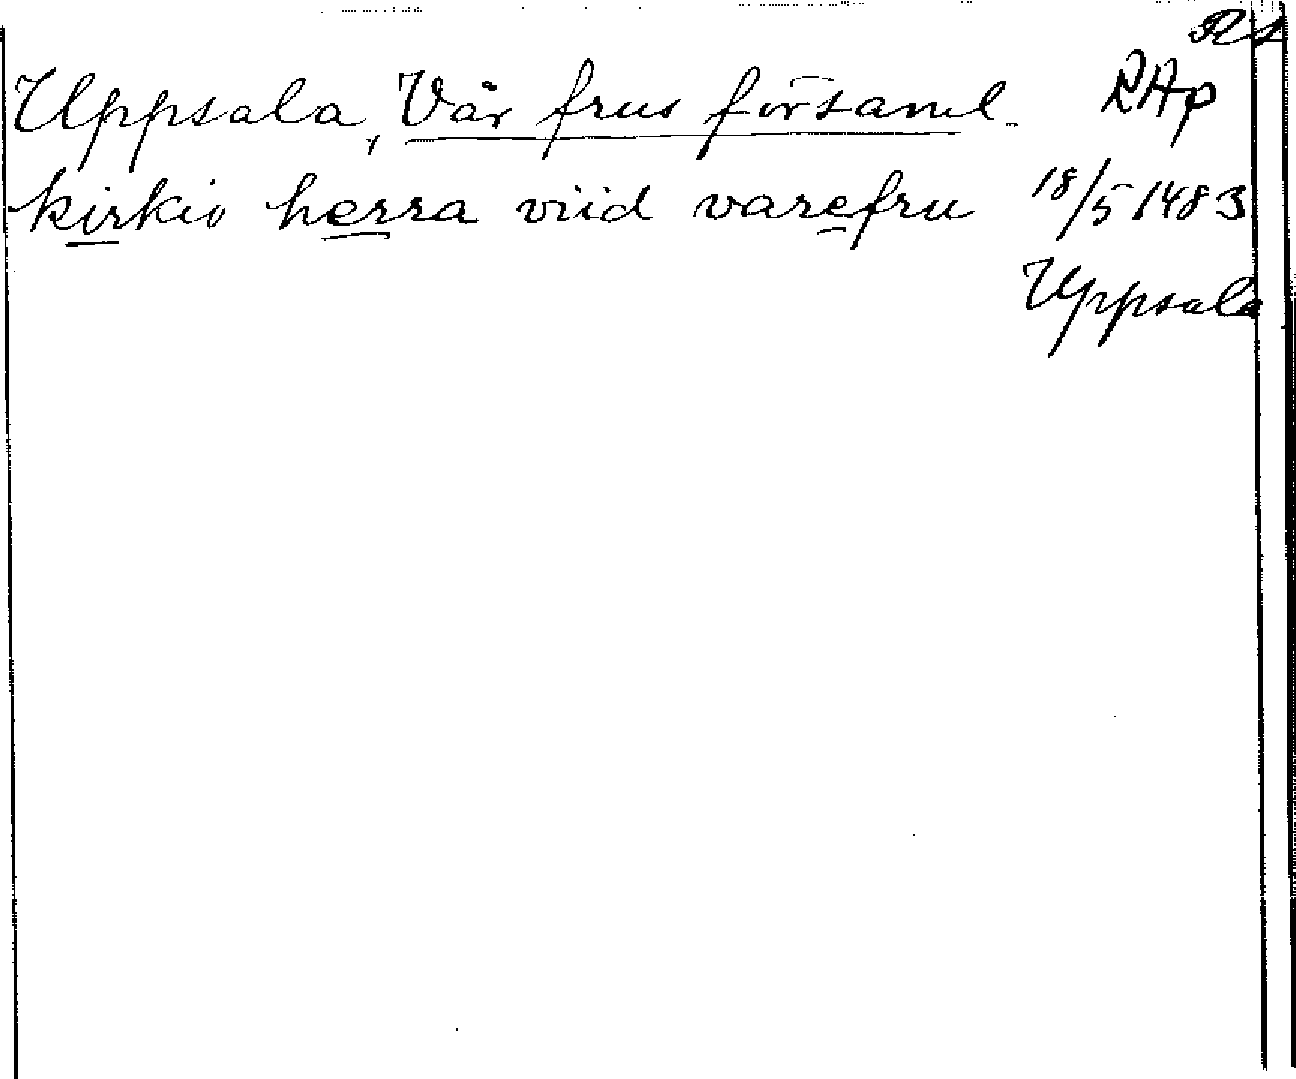 Rs
Uppsala, Vår frus församl. RAp
kirkio herra viid varefru 18/5 1483
Uppsala